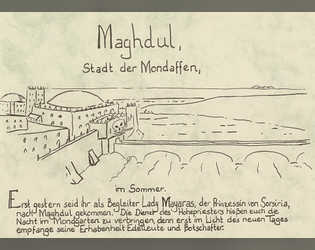 Maghdul,
Stadt der Mondaffen,
im Sommer.
Erst gestern seid ihr als Begleiter Lady Mayaras, der Prinzessin von Sorsiria,
nach Maghdul gekommen. Die Diener des Hohepriesters hießen euch die
Nacht im Mondgarten zu verbringen, denn erst im Licht des neuen Tages
empfange seine Erhabenheit Edelleute und Botschafter.